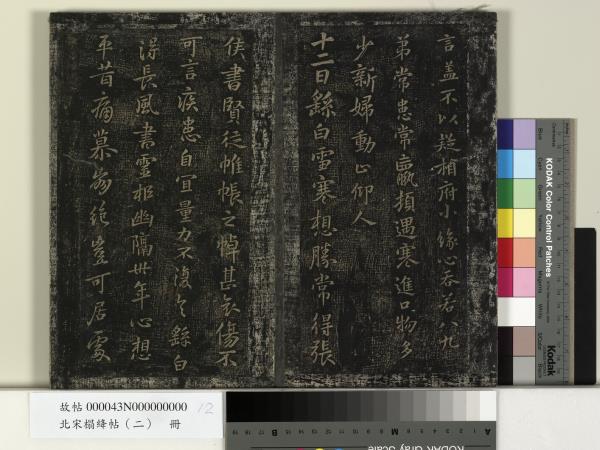 言蓋不以疑相府小緣心吞若八九
弟常患常羸頓遇寒進口物多
少新婦動止仰人
十二日繇白雪寒想勝常得張
侯書賢從帷帳之悼甚哀傷不
可言疾患自宜量力不復具繇白
得長風書靈柩幽隔卅年心想
平昔痛慕崩絕豈可居處
故帖 000043N000000000 12
北宋榻絳帖(二) 冊
KODAK Color Control Patches
Blue
Cyan
Green
Yellow
Red
Magenta
White
3/Color
Black
Kodak
KODAK Gray Scale
A 1 2 3 4 5 6 M 8 9 10 11 12 13 14 15 B 17 18 19